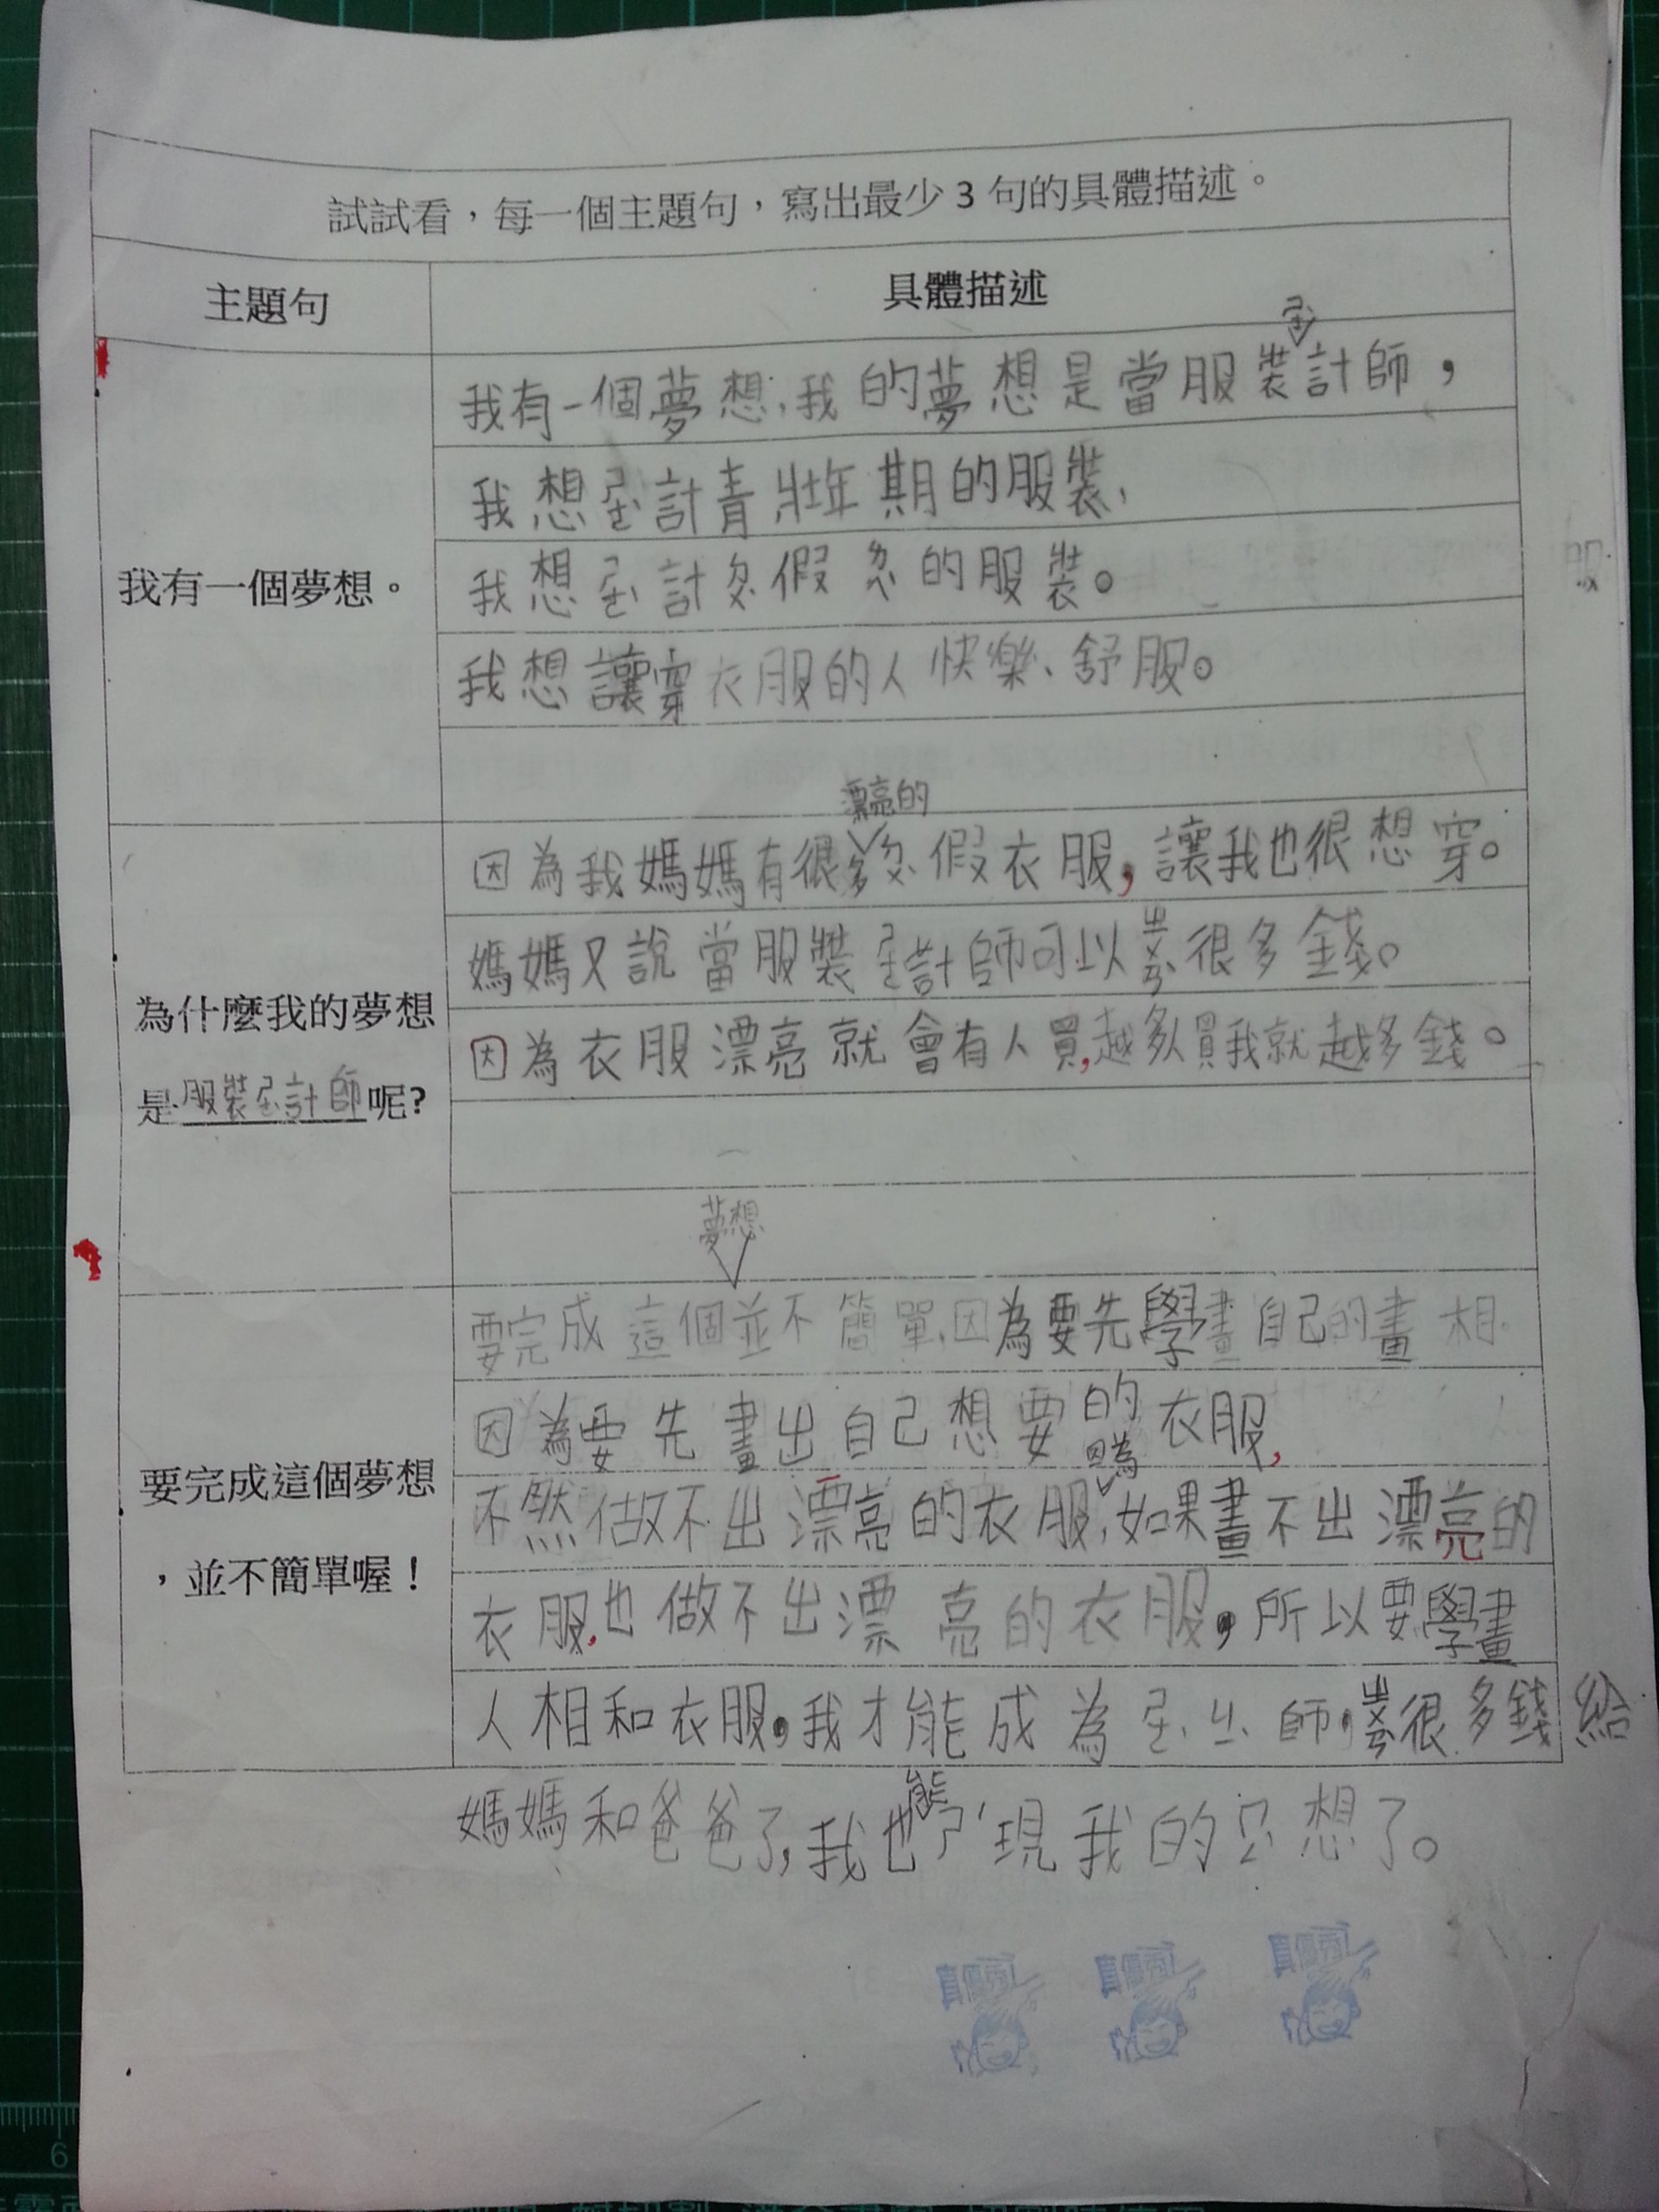 試試看，每一個主題句，寫出最少3句的具體描述。
主題句
具體描述
我有一個夢想。
ㄕㄜˋ
我有一個夢想，我的夢想是當服裝計師，
我想ㄕㄜˋ計青壯年期的服裝，
我想ㄕㄜˋ計ㄉㄨˋ假的服裝。
我想讓穿衣服的人快樂、舒服。
為什麼我的夢想
是服裝ㄕㄜˋ計師呢?
漂亮的
因為我媽媽有很多ㄉㄨˋ假衣服，讓我也很想穿。
媽媽又說當服裝ㄕㄜˋ計師可以ㄓㄨㄢˋ很多錢。
因為衣服漂亮就會有人買，越多人買我就越多錢。
要完成這個夢想
，並不簡單喔！
夢想
要完成這個並不簡單，因為要先學畫自己的畫相。
因為要先畫出自己想要的衣服，
因為
不然做不出漂亮的衣服，如果畫不出漂亮的
衣服，也做不出漂亮的衣服，所以要學畫
人相和衣服，我才能成為ㄕㄜˋㄐㄧˋ師，ㄓㄨㄢˋ很多錢給
能
媽媽和爸爸了，我也現我的想了。
服
6